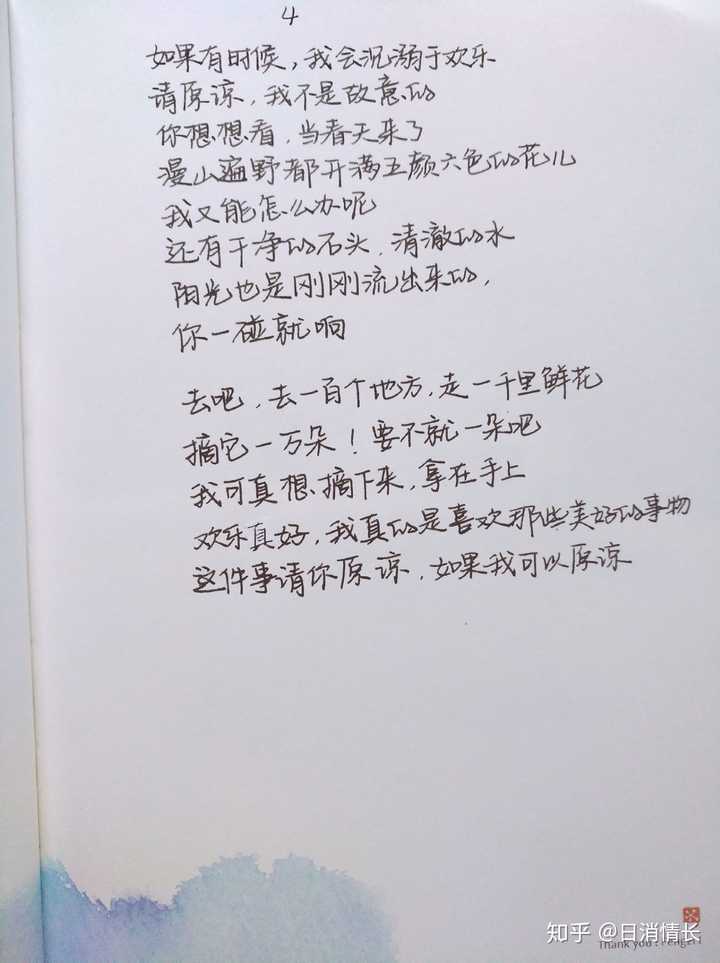 4
如果有时候，我会沉溺于欢乐
请原谅，我不是故意的
你想想看，当春天来了
漫山遍野都开满五颜六色的花儿
我又能怎么办呢
还有干净的石头，清澈的水
阳光也是刚刚流出来的，
你一碰就响
去吧，去一百个地方，走一千里鲜花
摘它一万朵！要不就一朵吧
我可真想摘下来，拿在手上
欢乐真好，我真的是喜欢那些美好的事物
这件事请你原谅，如果我可以原谅
知乎 @日消情长
Thank you